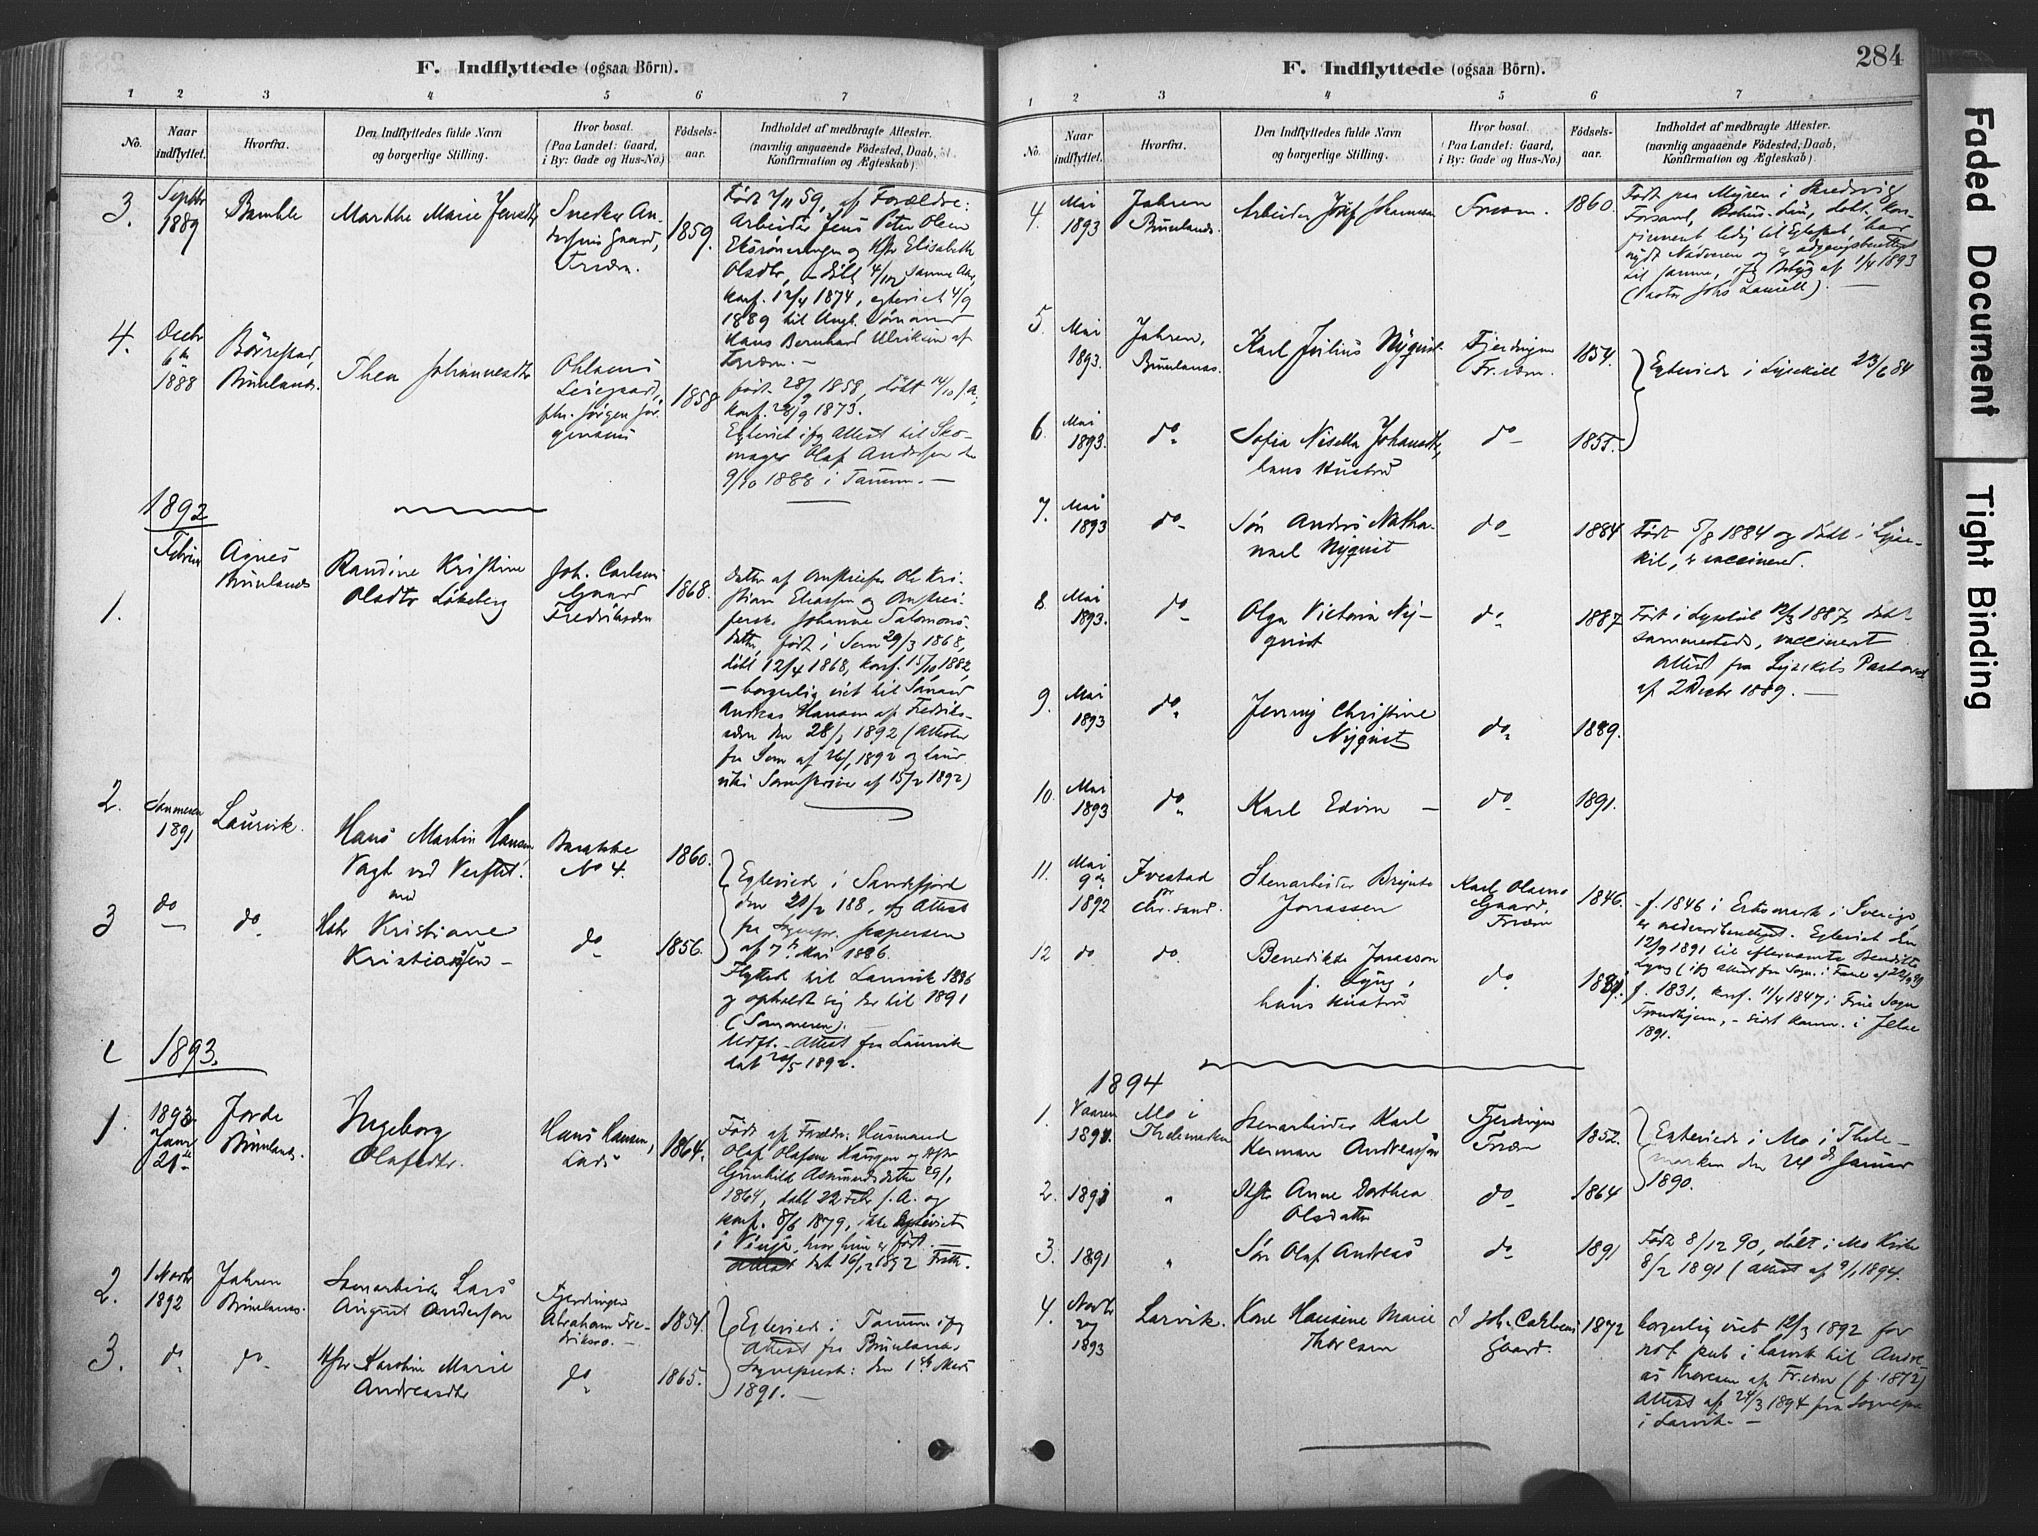 F. Indflyttede (ogsaa Börn).
1 2 3 4 5 6 7
No.
Naar
indflyttet.
Hvorfra.
Den Indflyttedes fulde Navn
og borgerlige Stilling.
Hvor bosat.
(Paa Landet: Gaard,
i By: Gade og Hus-No.)
Födsels-
aar.
Indholdet af medbragte Attester.
(navnlig angaaende Födested, Daab,
Konfirmation og Ægteskab).
3.
Septbr
1889
Bamble
Marthe Marie Jensdtr
Snedker An-
dersens Gaard,
Fr.værn.
1859.
Født 7/11 59, af Forældre:
Arbeider Jens Peter Olsen
og Hstr Elisabeth
Olsdtr, døbt 4/12 samme Aar,
konf. 12/4 1874, egteviet 4/9
1889 til Ungk. Sømand
Hans Bernhard Ulriksen af
Fr.værn. —
4.
Decbr
6te
1888
Børrestad,
Brunlanæs.
Thea Johannesdtr
Ohlsens
Leiegaard,
Jørgen Jør-
gensens
1858
født 28/9 1858, døbt 14/10 s.A.
konf. 28/9 1873.
Egteviet ifg Attest til Sko-
mager Olaf Andersen den
9/10 1888 i Tanum. —
1892
1.
Februar
Agnes
Brunlanæs
Randine Kristine
Olsdtr Løkeberg
Joh. Carlsens
Gaard
Fredriksværn
1868.
Datter af Opstrøifer Ole Kri-
stian Eliassen og
Johanne Salomons-
datter, født i Sem 29/3 1868,
døbt 12/4 1868, konf. 15/10 1882,
— borgerlig viet til Sømand
Andreas Hansen af Fredriks-
værn den 28/1 1892 (Attester
fra Sem af 26/1 1892 og Laur-
viks Sorenskriver af 15/2 1892)
2.
Sommeren
1891
Laurvik.
Hans Martin Hansen
Vagt ved Verftet.
med
Barakke
No 4.
1860.
Egteviede i Sandefjord
den 21/2 188 , ifg Attest
fra Sognepr. Jespersen
af 7de Mai 1886.
Flyttede til Laurvik 1886
og opholdt sig der til 1891
(Sommeren).
Udfl. - Attest fra Laurvik
dat 20/5 1892.
3
do
do
Hstr Kristiane
Kristiansen —
do
1856.
1893.
1.
1893
Janr
21de
Jorde
Brunlanæs.
Ingeborg
Olafsdtr.
Hans Hansen,
1864.
Født af Forældr: Husmand
Olaf Olafsen Haugen og Hstr
Gunhild Aasmundsdatter 29/1
1864, døbt 22 Febr s.A. og
konf. 8/6 1879, ikke egteviet
i Vinje, hvor hun er født.
Attest dat 16/12 1892
2.
1 Novbr
1892
Jahren
Brunlanæs.
Stenarbeider Lars
August Anderson
Fjerdingen
Abraham Fre-
driksen. —
1854.
Egteviede i Tanum ifg
Attest fra Brunlanæs
Sognepræst: den 1ste Marts
1891. —
3.
do
do
Hstr Karoline Marie
Andreasdtr
do
1865.
F. Indflyttede (ogsaa Börn).
284
1 2 3 4 5 6 7
No.
Naar
indflyttet.
Hvorfra.
Den Indflyttedes fulde Navn
og borgerlige Stilling.
Hvor bosat.
(Paa Landet: Gaard,
i By: Gade og Hus-No.)
Födsels-
aar.
Indholdet af medbragte Attester.
(navnlig angaaende Födested, Daab,
Konfirmation og Ægteskab).
4.
Mai
1893
Jahren
Brunlanæs.
Arbeider Josef Johannesen
Fr.værn.
1860.
Født paa Myren i Bredsvig
Forsaml, Bohus-Len, døbt, kon-
firmeret ledig til Egteskab, har
nydt Nadveren og er adgangsberettiget
til samme, ifg Betyg af 1/4 1893
(Pastor Johs Laurell). —
5.
Mai
1893.
Jahren,
Brunlanæs.
Karl Julius Nyquist
Fjerdingen
Fr.værn.
1854.
Egteviede i Lysekil 23/6 84
6.
Mai
1893.
do
Sofia Nisella Johansdtr,
hans Hustru
do
1855.
7.
Mai
1893
do
Søn Anders Natha-
nael Nyquist
do
1884
Født 5/8 1884 og døbt i Lyse-
kil, er vaccineret.
8.
Mai
1893.
do
Olga Victoria Ny-
quist
do
1887
Født i Lysekil 12/3 1887, døbt
sammesteds, vaccineret
Attest fra Lysekils Pastorat
af 2 Decbr 1889. —
9.
Mai
1893
do
Jenny Christine
Nyquist
do
1889.
10.
Mai
1893
do
Karl Edvin —
do
1891.
11.
Mai
9de
1892
Ivestad
pr
Chr.sand.
Stenarbeider Brynte
Jonassen
Karl Olsens
Gaard,
Fr.værn
1846.
f. 1846 i Ertsmark i Sverige,
er nadverberettiget. Egteviet den
12/9 1891 til efternævnte Benedikte
Lyng
f. 1831, konf. 11/4 1847 i Frue Sogn
Trondhjem, — sidst komm. i Jelse
1891.
12
do
do.
Benedikte Jonasson
f. Lyng,
hans Hustru
do
1831.
1894
1.
Vaaren
1891.
Mo i
Thelemarken
Stenarbeider Karl
Herman Andreasson
Fjerdingen
Fr.værn
1852.
Egteviede i Mo i Thele-
marken den 24de Januar
1890.
2.
1891
"
Hstr Anne Dorthea
Olsdatter
do
1864
3.
1891
"
Søn Olaf Andreas
do
1891
Født 8/12 90, døbt i Mo Kirke
8/2 1891 (Attest af 9/1 1894.
4.
Novbr
1893
Larvik.
Kone Hansine Marie
Thoresen
I Joh. Carlsens
Gaard.
1872
borgerlig viet 12/3 1892 for
not. pub. i Larvik til Andre-
as Thoresen af Fr.værn (f. 1872)
Attest af 24/3 1894 fra Sognepr
i Larvik. —
Faded Document
Tight Binding